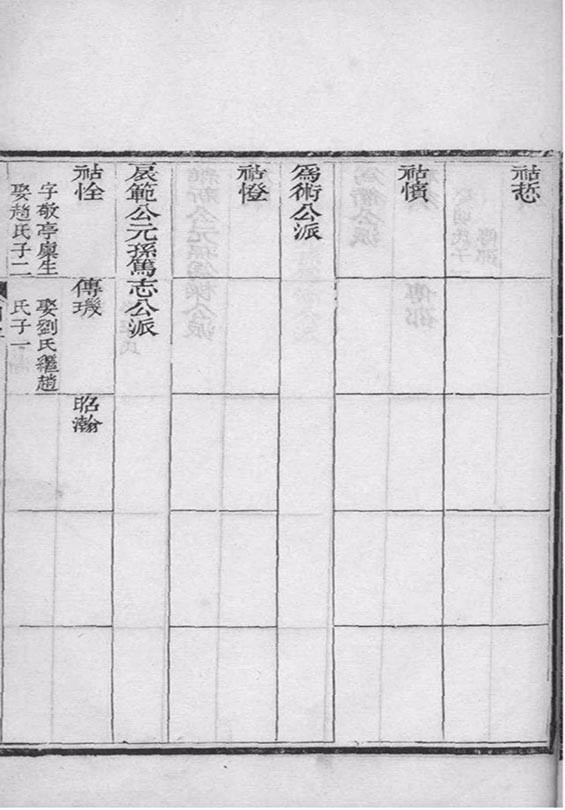 祜悊
祜懫
為術公派
祜憕
晨範公元孫篤志公派
祜恮
字敬亭廩生
娶趙氏子二
傳璣
娶劉氏繼趙
氏子一
昭瀚